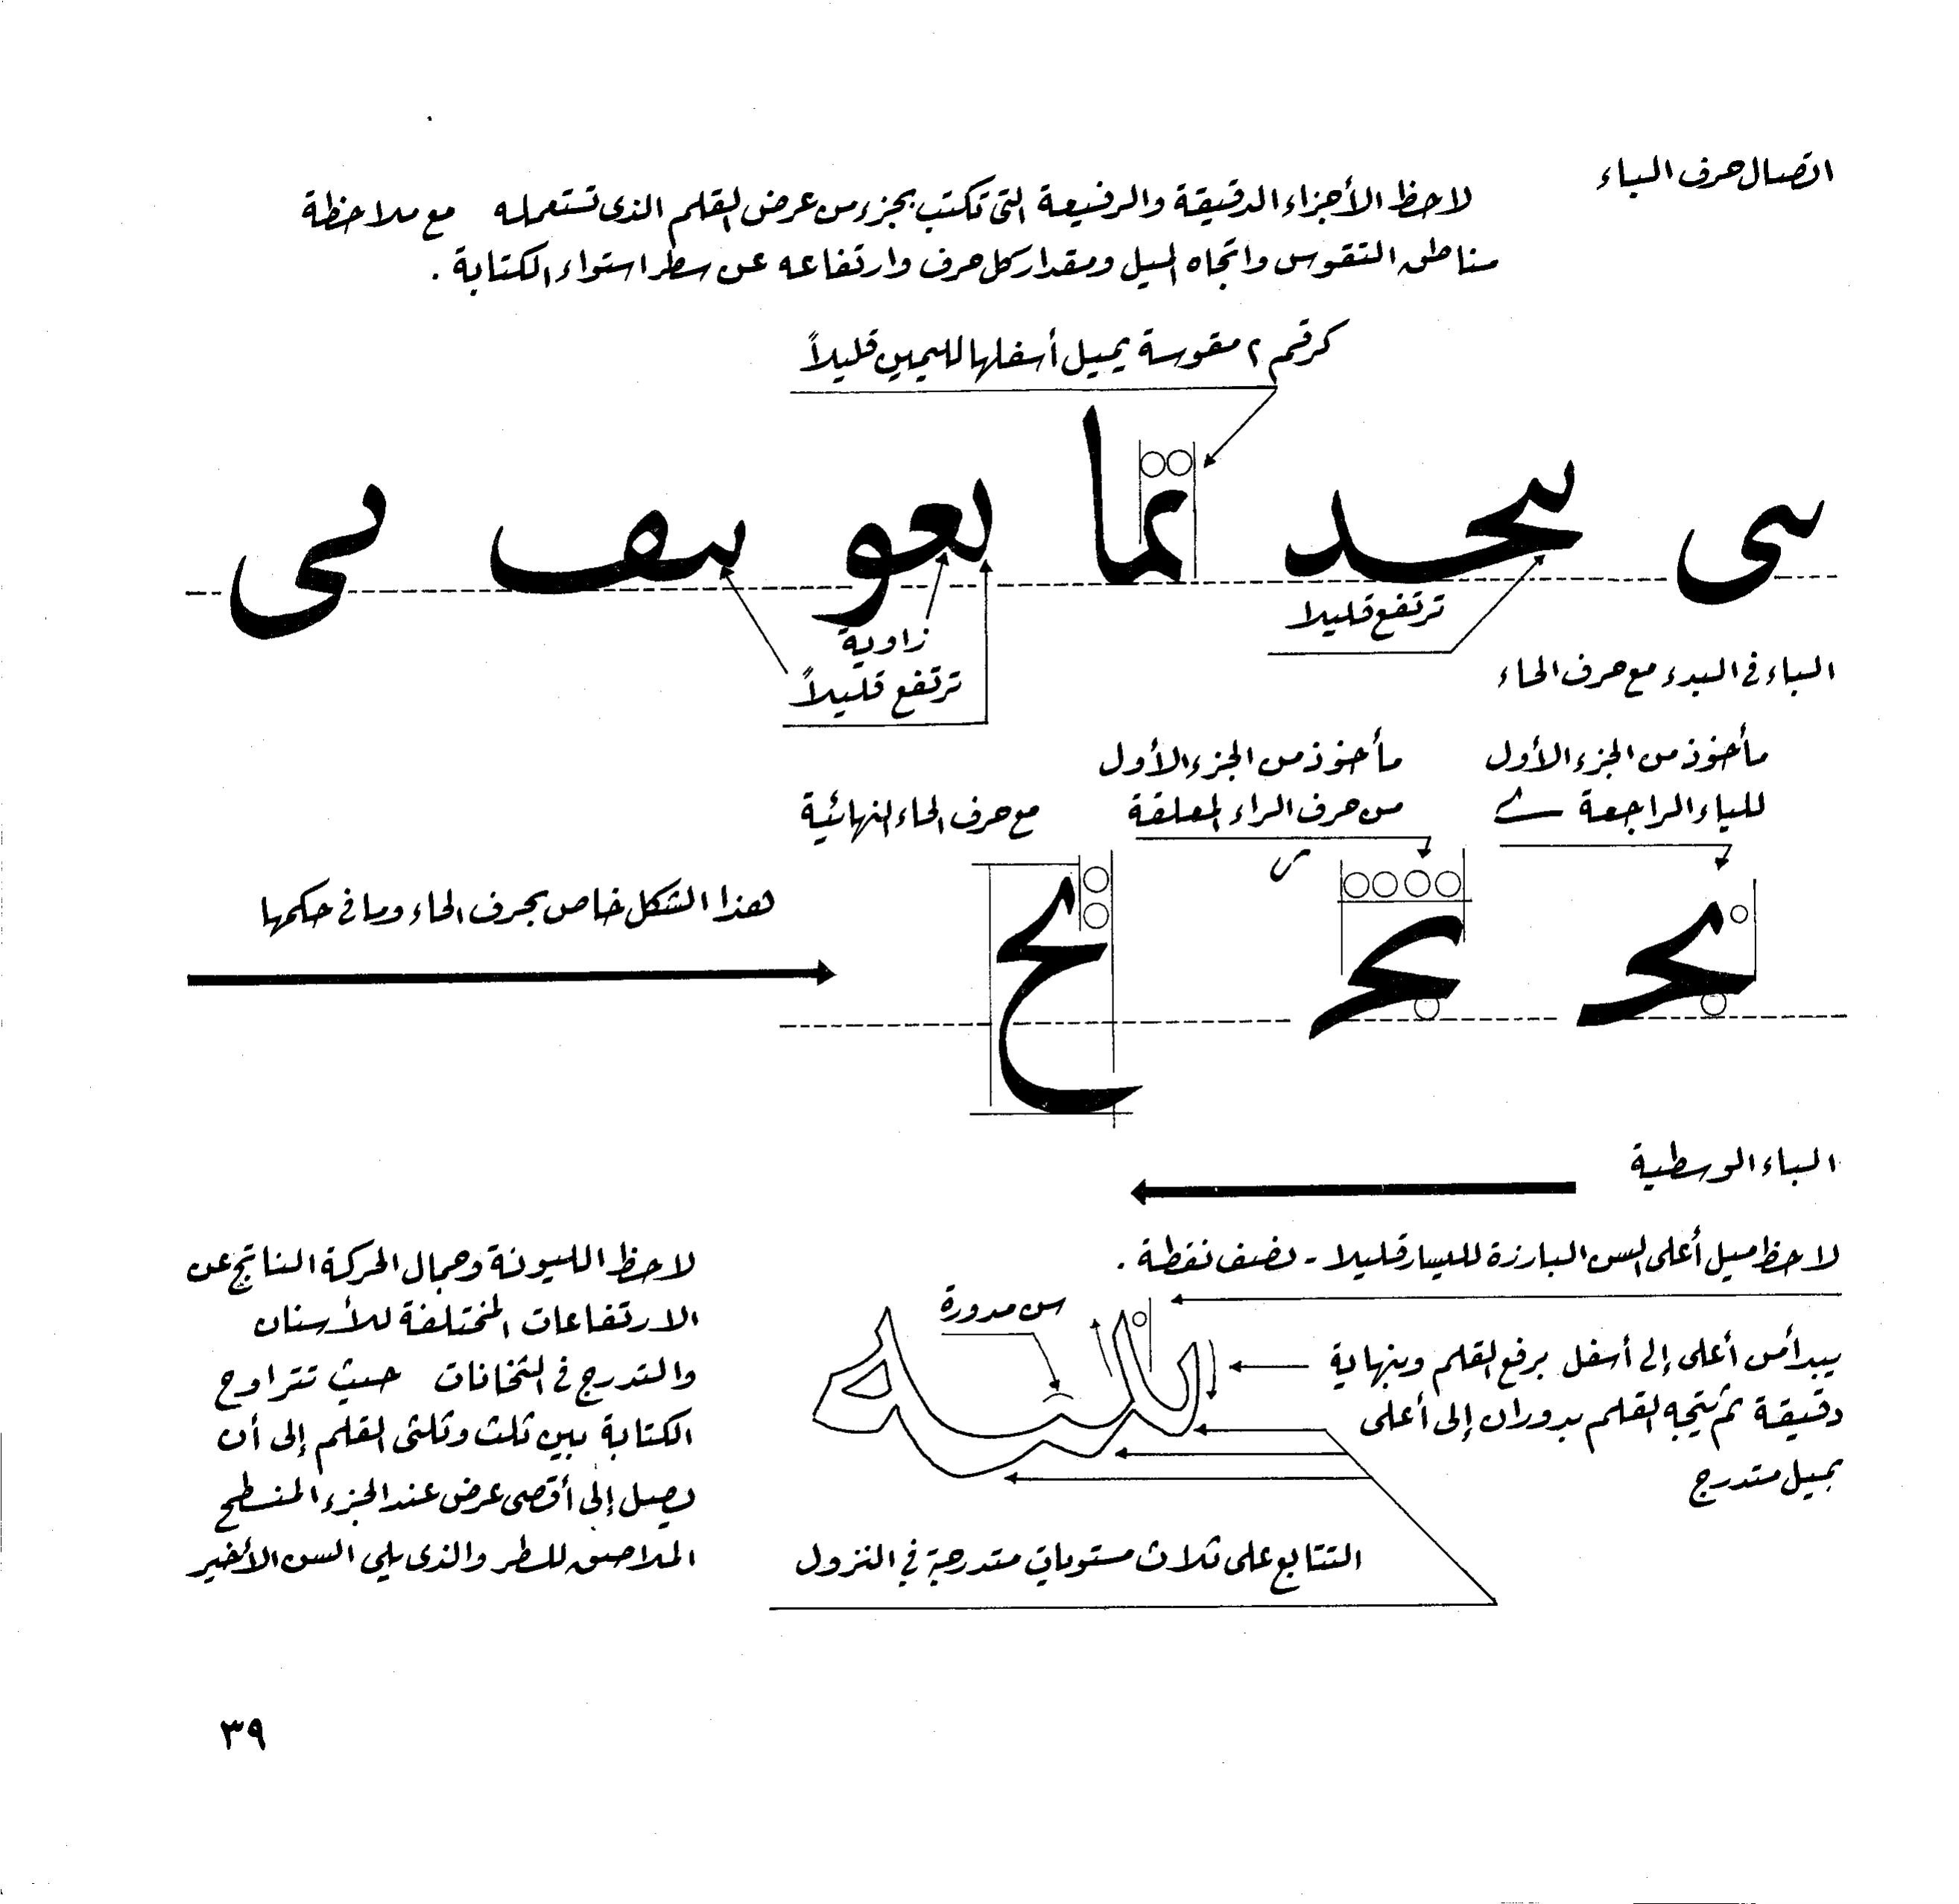 اتصال حرف الباء
لاحظ الأجزاء الدقيقة والرفيعة التى تكتب بجزء من عرض القلم الذى تستعمله مع ملاحظة
مناطق التقوس واتجاه الميل ومقدار كل حرف وارتفاعه عن سطر استواء الكتابة .
كرقم ٢ مقوسة يميل أسفلها لليمين قليلاً
ترتفع قليلا
زاوية
ترتفع قليلاً
الباء فى البدء مع حرف الحاء
مأخوذ من الجزء الأول
للياء الراجعة
مأخوذ من الجزء الأول
من حرف الراء المعلقة
مع حرف الحاء النهائية
هذا الشكل خاص بحرف الحاء وما فى حكمها
الباء الوسطية
لاحظ ميل أعلى السن البارزة لليسار قليلا - نصف نقطة .
سن مدورة
يبدأ من أعلى إلى أسفل برفع القلم وبنهاية
دقيقة ثم يتجه القلم بدوران إلى أعلى
بميل متدرج
التتابع على ثلاث مستويات متدرجة فى النزول
لاحظ الليونة وجمال الحركة الناتج عن
الارتفاعات المختلفة للأسنان
والتدرج فى الثخانات حيث تتراوح
الكتابة بين ثلث وثلثى القلم إلى أن
يصل إلى أقصى عرض عند الجزء المنسطح
الملاصق للسطر والذى يلى السن الأخير
٣٩